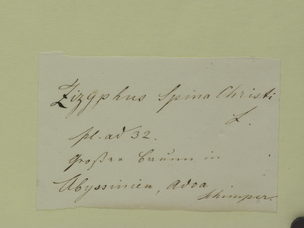 Zizyphus Spina Christi
L.
pl. ad 32.
Großer Baum in
Abyssinien, Adoa
Schimper.